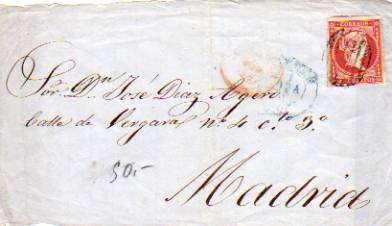 CORREOS
Sor. Dn. José Diaz Agero
Calle de Vergara nº 4 cto 3º
50.-
Madrid